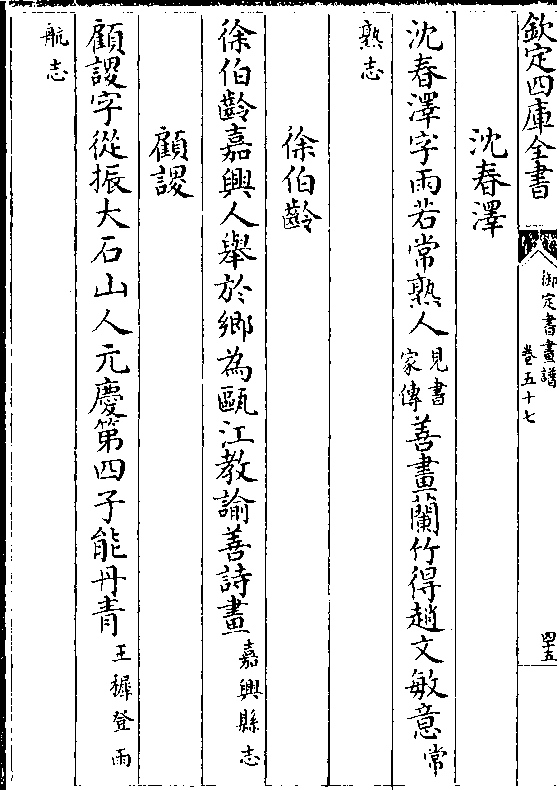 欽定四庫全書
御定書畫譜
卷五十七
四五
沈春澤
沈春澤字雨若常熟人見書家傳善畫蘭竹得趙文敏意常
熟志
徐伯齡
徐伯齡嘉興人舉於鄉為甌江教諭善詩畫嘉興縣志
顧謖
顧謖字從振大石山人元慶第四子能丹青王穉登雨
航志